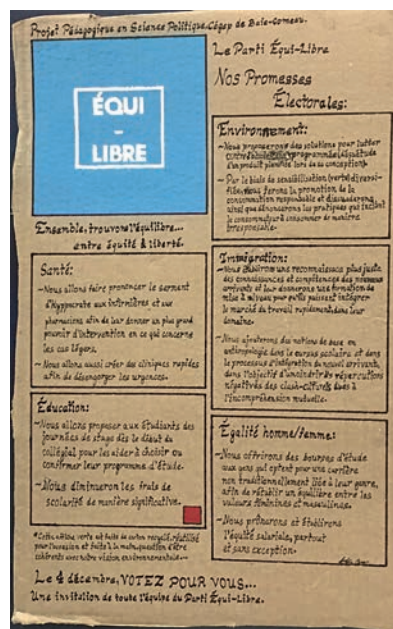 Projet Pédagogique en Science Politique. Cégep de Baie-Comeau.
ÉQUI
-
LIBRE
Ensemble, trouvons l'équilibre...
entre équité & liberté.
Santé:
-Nous allons faire prononcer le serment
d'Hyppocrate aux infirmières et aux
pharmaciens afin de leur donner un plus grand
pouvoir d'intervention en ce qui concerne
les cas légers.
-Nous allons aussi créer des cliniques rapides
afin de désengorger les urgences.
Éducation:
-Nous allons proposer aux étudiants des
journées de stage dès le début du
collégial pour les aider à choisir ou
confirmer leur programme d'étude.
-Nous diminuerons les frais de
scolarité de manière significative.
*Cette affiche verte est faite de carton recyclé, réutilisé
pour l'occasion et faite à la main, question d'être
cohérents avec notre vision environnementale.
Le Parti Équi-Libre
Nos Promesses
Électorales:
Environnement:
-Nous proposerons des solutions pour lutter
contre programmée
d'un produit planifiée lors de sa conception.
-Par le biais de sensibilisation (verte) diversi-
fiée, nous ferons la promotion de la
consommation responsable et dissuaderons,
ainsi que dénoncerons les pratiques qui incitent
le consommateur à consommer de manière
irresponsable.
Immigration:
-Nous établirons une reconnaissance plus juste
des connaissances et compétences des nouveaux
arrivants et leur donnerons une formation de
mise à niveau pour qu'ils puissent intégrer
le marché du travail rapidement dans leur
domaine.
-Nous ajouterons des notions de base en
anthropologie dans le cursus scolaire et dans
le processus d'intégration du nouvel arrivant,
dans l'objectif d'amoindrir les répercutions
négatives des clash-culturels dues à
l'incompréhension mutuelle.
Égalité homme/femme:
-Nous offrirons des bourses d'étude
aux gens qui optent pour une carrière
non traditionnellement liée à leur genre,
afin de rétablir un équilibre entre les
valeurs féminines et masculines.
-Nous prônerons et établirons
l'équité salariale, partout
et sans exception.
Le 4 décembre, VOTEZ POUR VOUS...
Une invitation de toute l'équipe du Parti Équi-Libre.